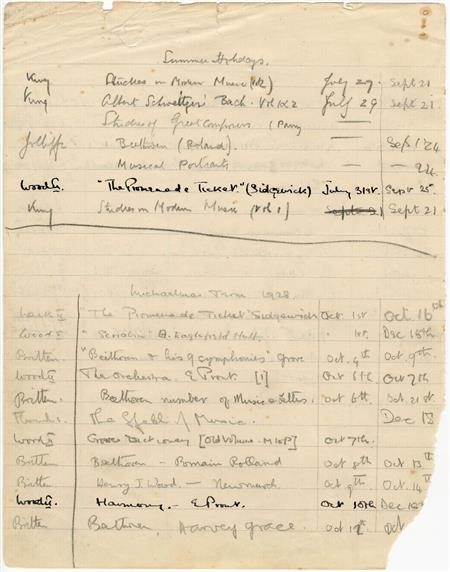 Summer Holidays.
King Studies in Modern Music (1&2) July 29. Sept 21
King Albert Schweitzer's Bach. Vol 1 & 2 July 29 Sept 21.
Studies of Great Composers (Parry —
Jolliffe Beethoven (Roland). — Sept 1 '24
Musical Portraits — 24.
Wood II. "The Promenade Ticket" (Sidgwick) July 31st. Sept 25.
King Studies in Modern Music (Vol 1) Sept 21
Michaelmas Term 1928.
The Promenade Ticket Sidgwick Oct. 1st Oct 16th
Wood II "Scriabin" A. Eaglefield Hull. " 1st. Dec 18th
Britten "Beethoven & his 9 symphonies" Grove Oct. 4th Oct 9th.
Wood II The Orchestra. E Prout. [1] Oct 6th Oct 7th
Britten. Beethoven number of Music & Letters. Oct 6th. Oct. 21st
The Spell of Music. Dec 13
Wood II Groves Dictionary [Old Volume - M to P] Oct 7th.
Britten Beethoven - Romain Rolland Oct 8th Oct 13th
Britten Henry J Wood — Newmarch. Oct 9th. Oct. 14th
Wood II. Harmony. - E Prout. Oct 10th Dec
Britten Beethoven, Harvey Grace. Oct 12th Oct